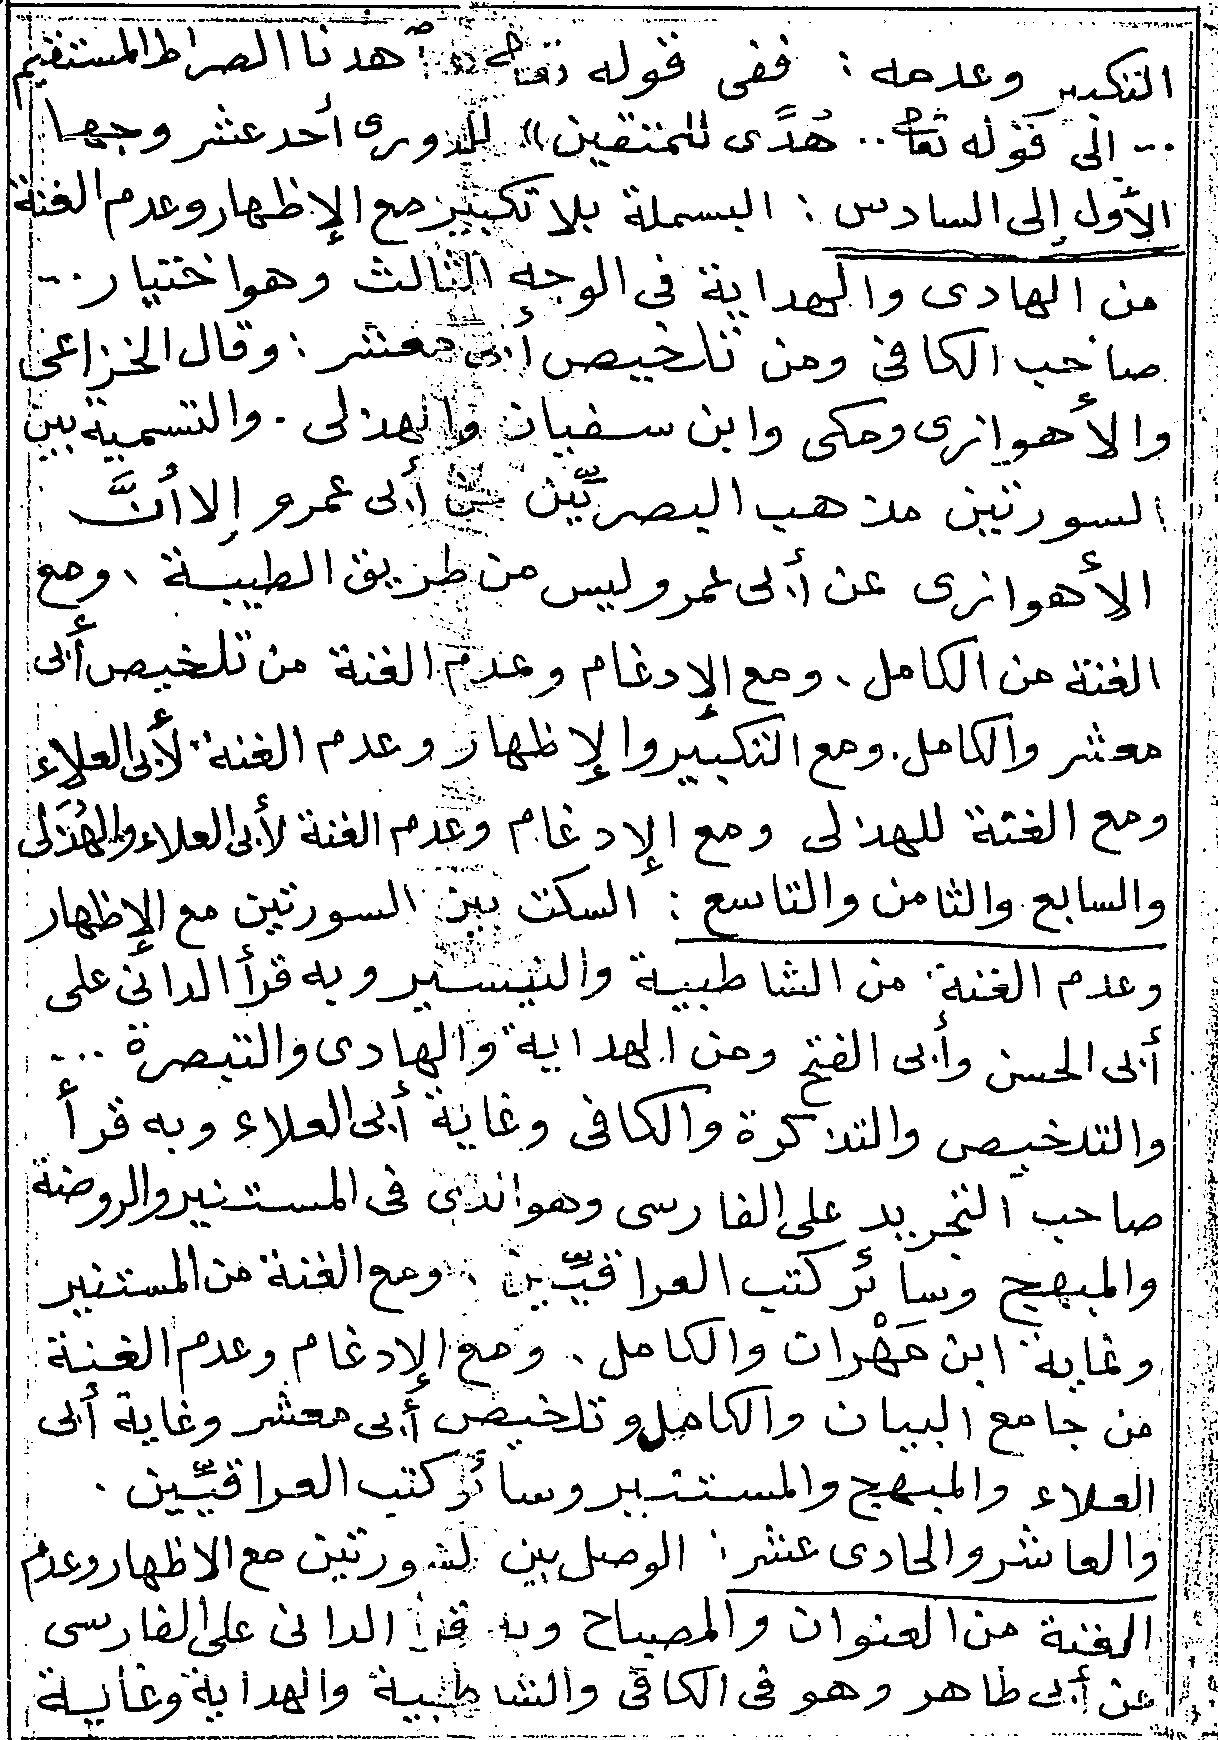 التكبير وعدمه : ففى قوله تعالى « اهدنا الصراط المستقيم
... إلى قوله تعالى .. هُدًى للمتقين » للدورى أحد عشر وجها
الأول إلى السادس : البسملة بلا تكبير مع الإظهار وعدم الغنة
من الهادى والهداية فى الوجه الثالث وهو اختيار ...
صاحب الكافى ومن تلخيص أبى معشر : وقال الخزاعى
والأهوازى ومكى وابن سفيان والهذلى . والتسمية بين
السورتين مذهب البصريِّين عن أبى عمرو إلا أنَّ
الأهوازى عن أبى عمرو ليس من طريق الطيبة ، ومع
الغنة من الكامل ، ومع الإدغام وعدم الغنة من تلخيص أبى
معشر والكامل . ومع التكبير والإظهار وعدم الغنة لأبى العلاء
ومع الغنة للهذلى ومع الإدغام وعدم الغنة لأبى العلاء والهُذَلى
والسابع والثامن والتاسع : السكت بين السورتين مع الإظهار
وعدم الغنة من الشاطبية والتيسير وبه قرأ الدانى على
أبى الحسن وأبى الفتح ومن الهداية والهادى والتبصرة ...
والتلخيص والتذكرة والكافى وغاية أبى العلاء وبه قرأ
صاحب التجريد على الفارسى وهو الذى فى المستنير والروضة
والمبهج وسائر كتب العراقيِّين . ومع الغنة من المستنير
وغاية ابن مَهْران والكامل ، ومع الإدغام وعدم الغنة
من جامع البيان والكامل وتلخيص أبى معشر وغاية أبى
العلاء والمبهج والمستنير وسائر كتب العراقيِّين .
والعاشر والحادى عشر : الوصل بين السورتين مع الاظهار وعدم
الغنة من العنوان والمصباح وبه قرأ الدانى على الفارسى
عن أبى طاهر وهو فى الكافى والشاطبية والهداية وغاية